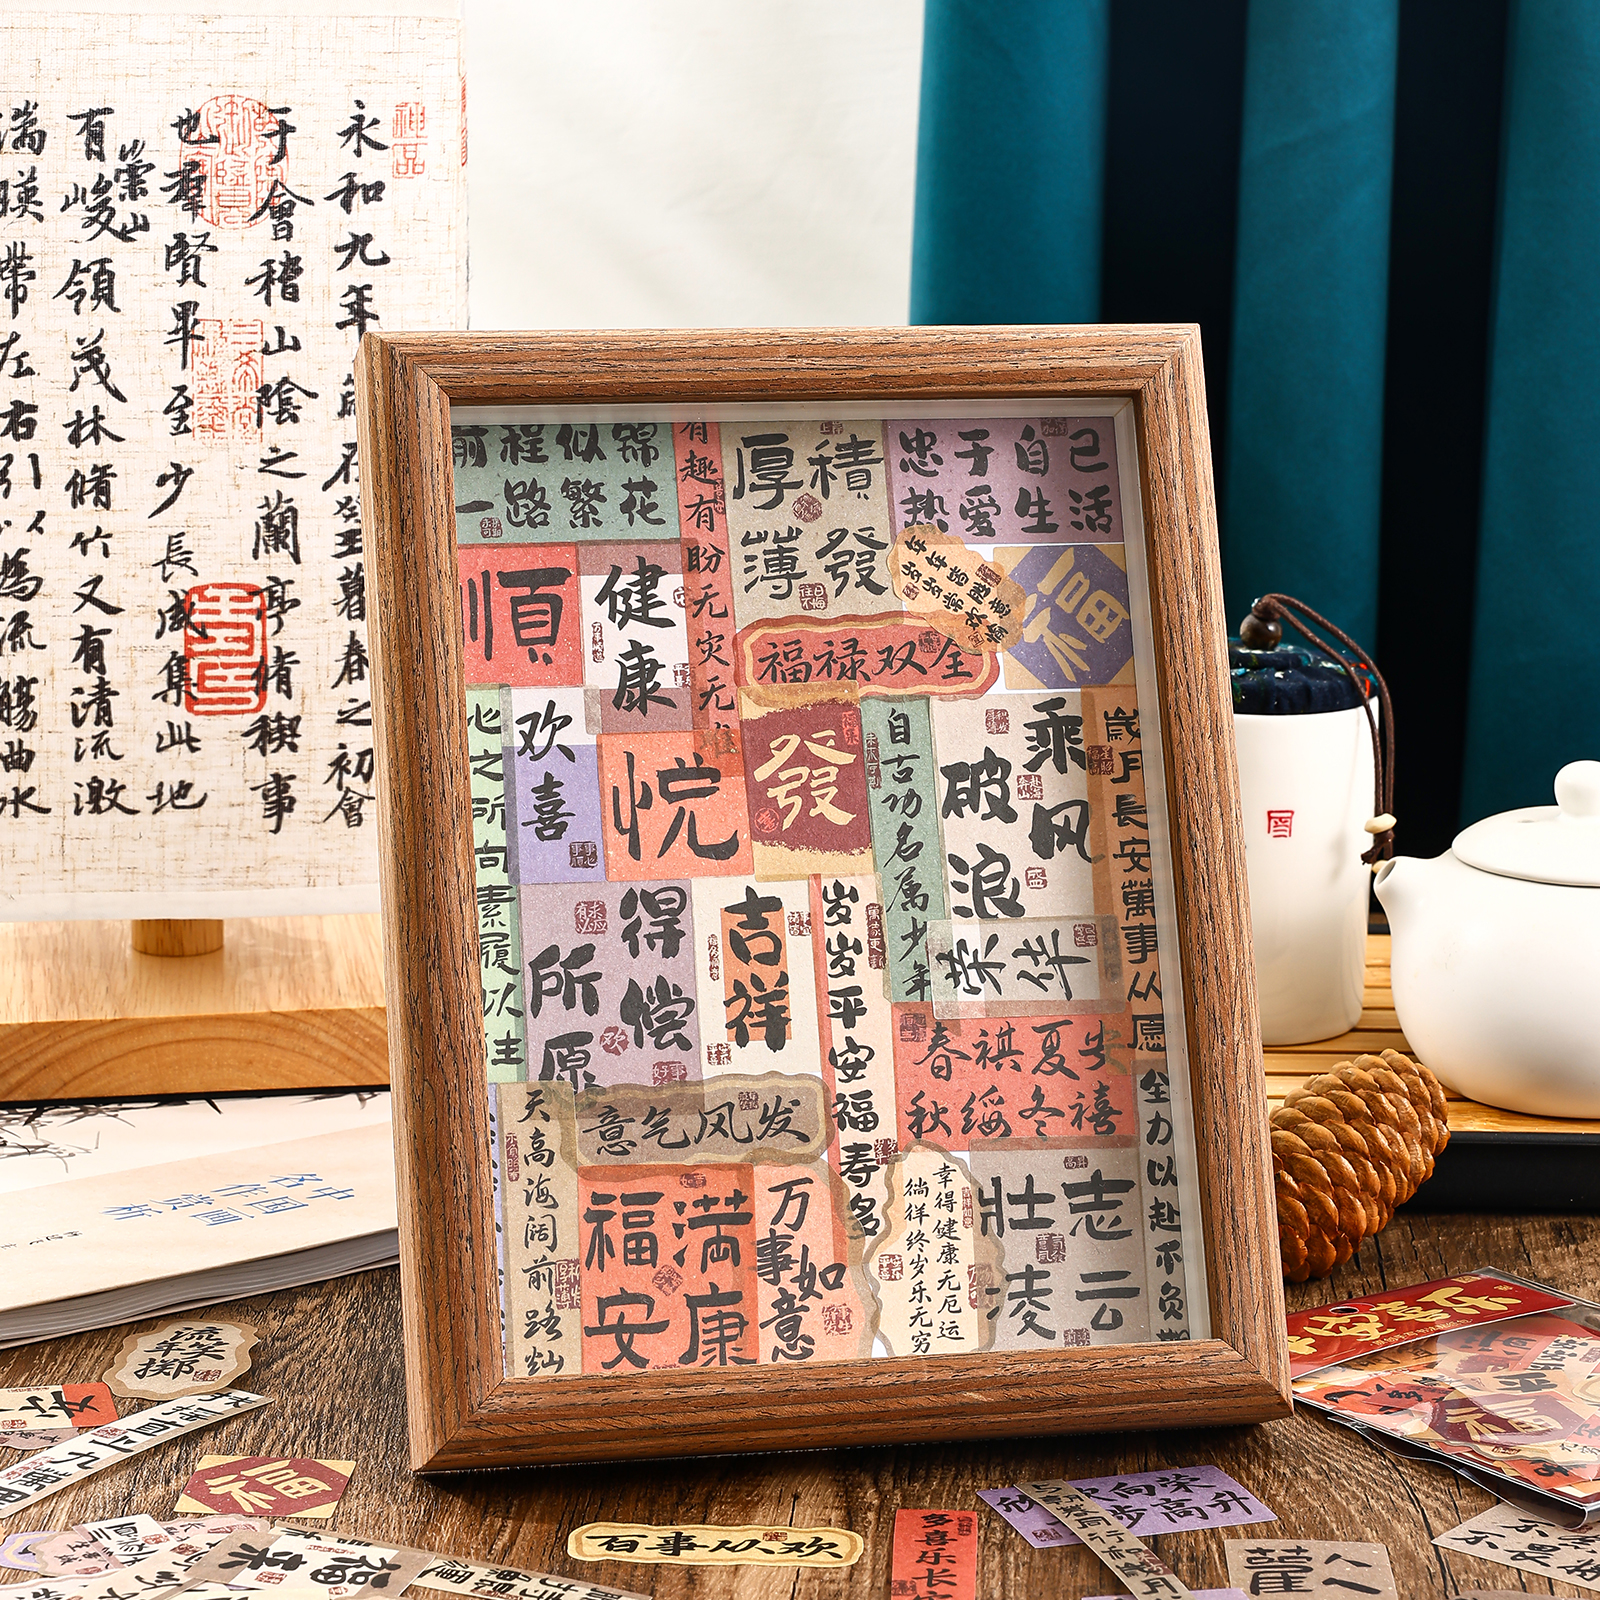 永和九年
暮春之初會
于會稽山陰之蘭亭脩禊事
也羣賢畢至少長咸集此地
有崇山峻領茂林脩竹又有清流激
湍暎帶左右引以為流觴曲水
神品
前程似錦
一路繁花
有趣有盼无灾无难
厚積
薄發
忠于自己
热爱生活
順
健康
年年皆胜意
岁岁常欢愉
福
福禄双全
心之所向素履以往
欢喜
悦
發
自古功名属少年
乘风
破浪
歲月長安萬事从愿
得偿
所愿
吉祥
岁岁平安福寿多
荣华
春祺夏安
秋绥冬禧
天高海阔前路灿
意气风发
福满
安康
万事如意
幸得健康无厄运
徜徉终岁乐无穷
壮志
凌云
全力以赴不负
中国画
名作赏析
流年笑掷
福
百事从欢
多喜乐长安
欣欣向荣
步步高升
平安喜乐
福